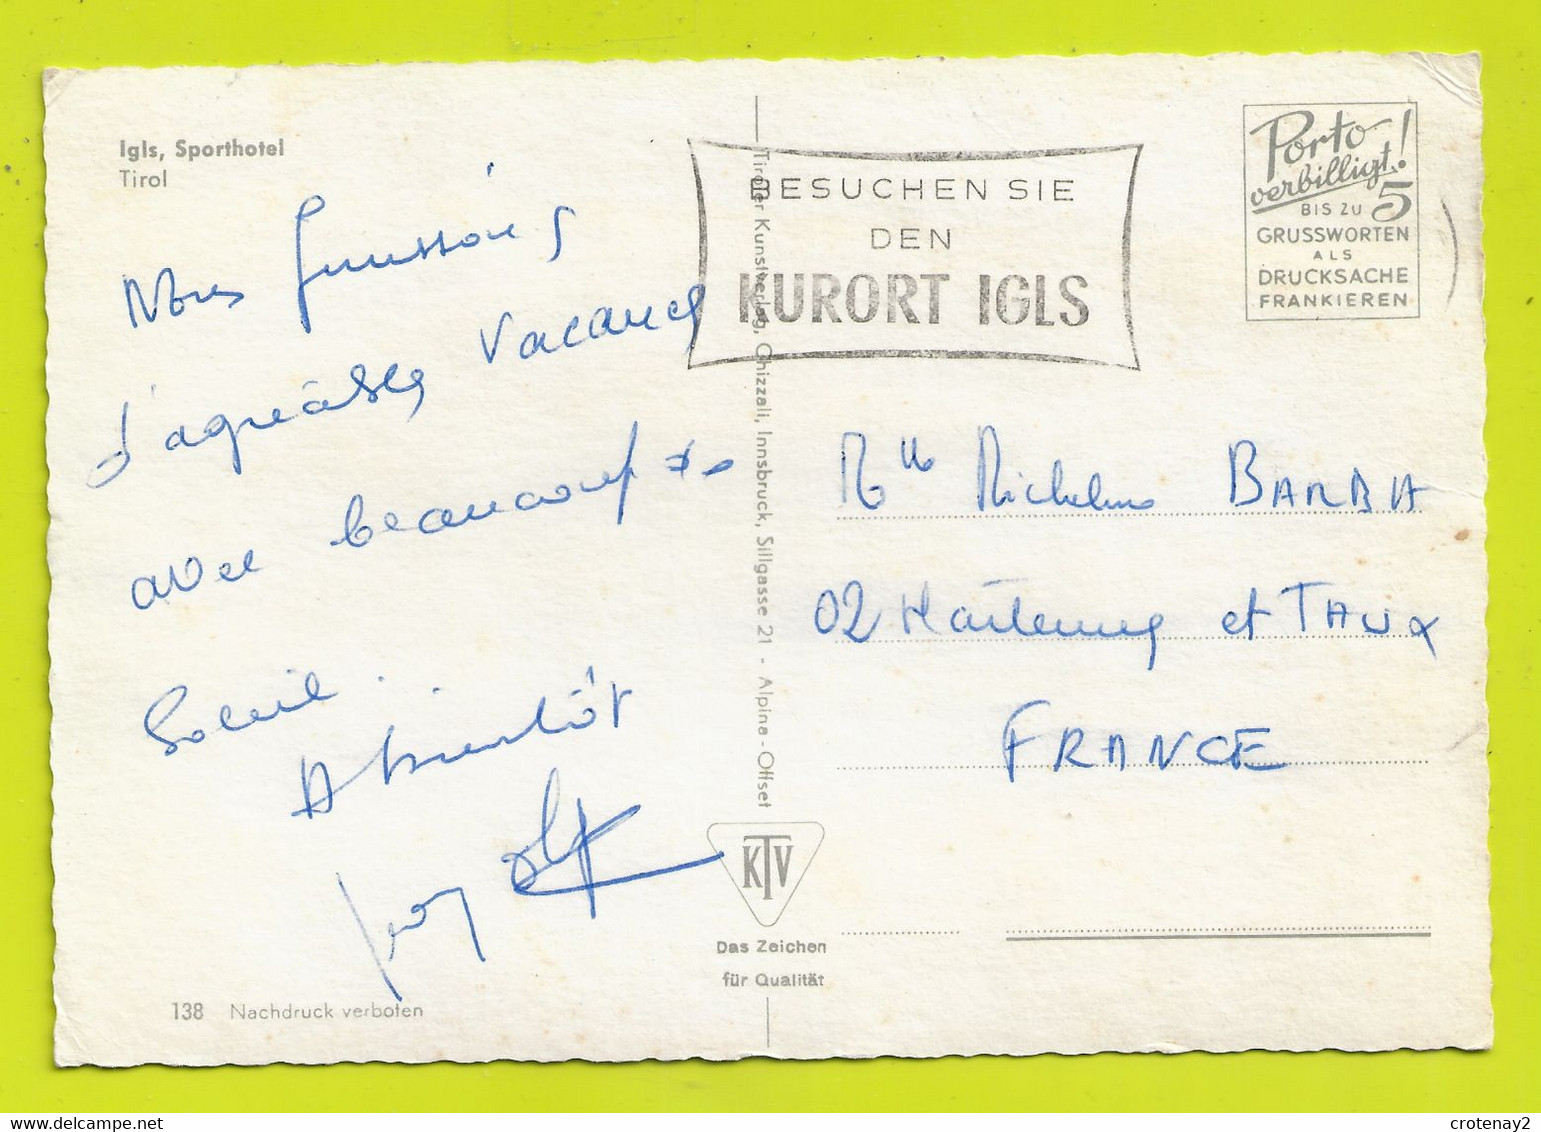 Igls, Sporthotel
Tirol
Nous finissons
d'agréables vacances
avec beaucoup de
Soleil.
A bientôt
138 Nachdruck verboten
Tiroler Kunstverlag, Chizzali, Innsbruck, Sillgasse 21 - Alpina-Offset
KTV
Das Zeichen
für Qualität
BESUCHEN SIE
DEN
KURORT IGLS
Porto
verbilligt!
BIS ZU 5
GRUSSWORTEN
ALS
DRUCKSACHE
FRANKIEREN
Mlle Micheline BARBA
02 Hartennes et TAUX
FRANCE
crotenay2